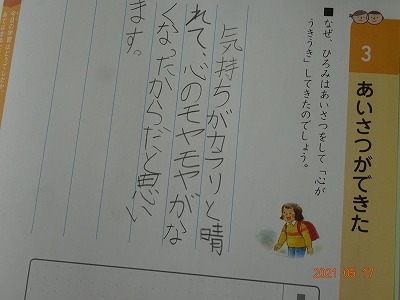 3
あいさつができた
■なぜ、ひろみはあいさつをして「心が
うきうき」してきたのでしょう。
気持ちがカラリと晴
れて、心のモヤモヤがな
くなったからだと思い
ます。
2021 09 17